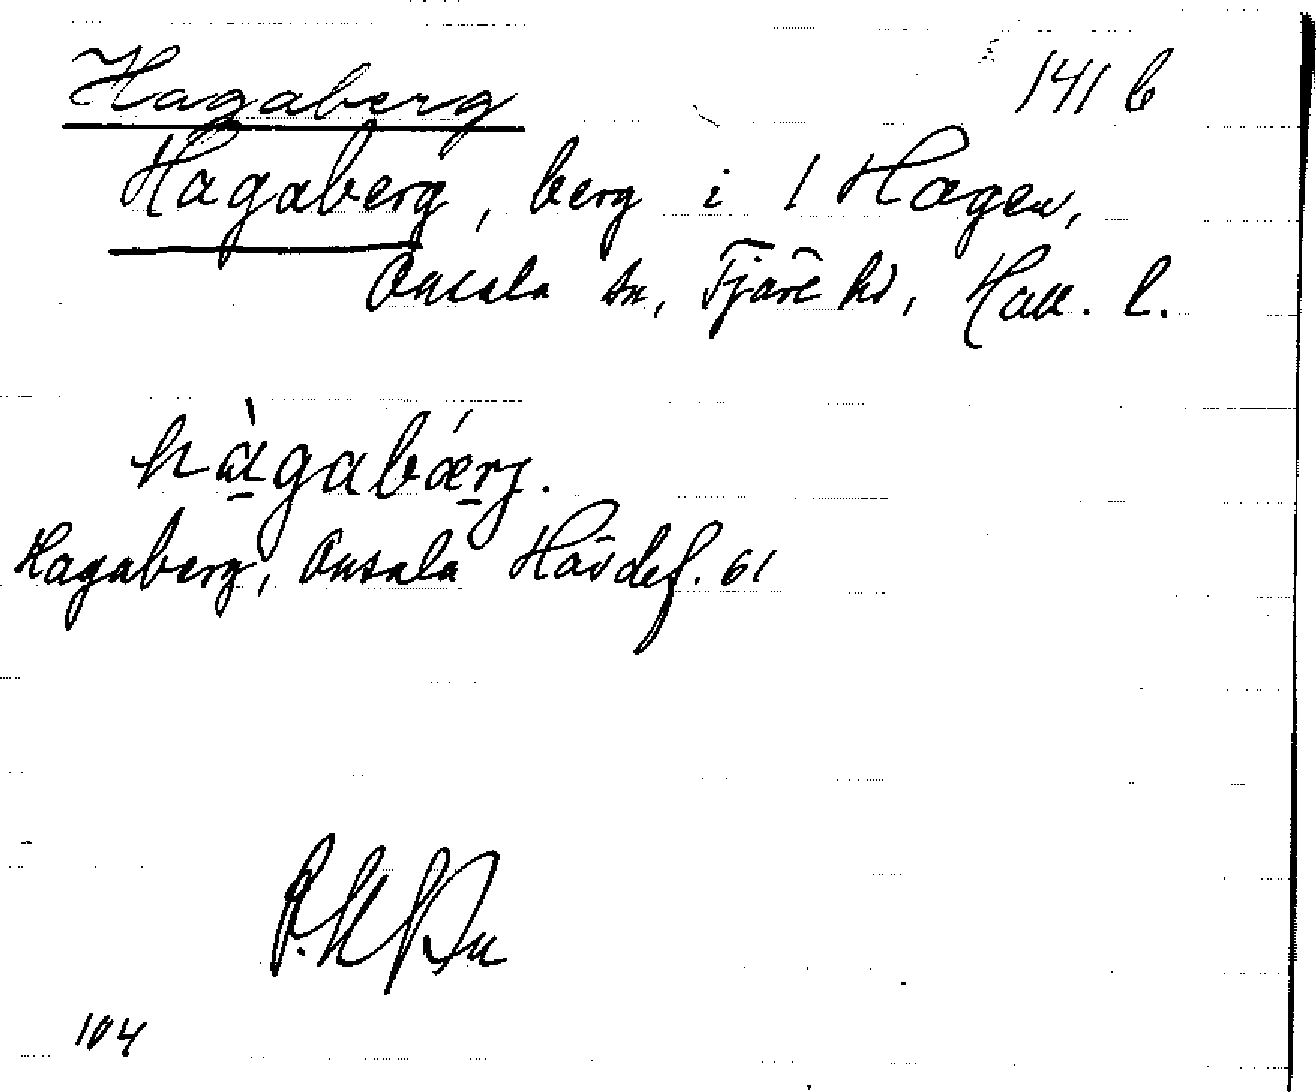 Hagaberg 141 b
Hagaberg, berg i 1 Hagen,
Onsala sn, Fjäre hd, Hall. l.
hàgabǽrj.
Hagaberg, Onsala Hävdef. 61
104